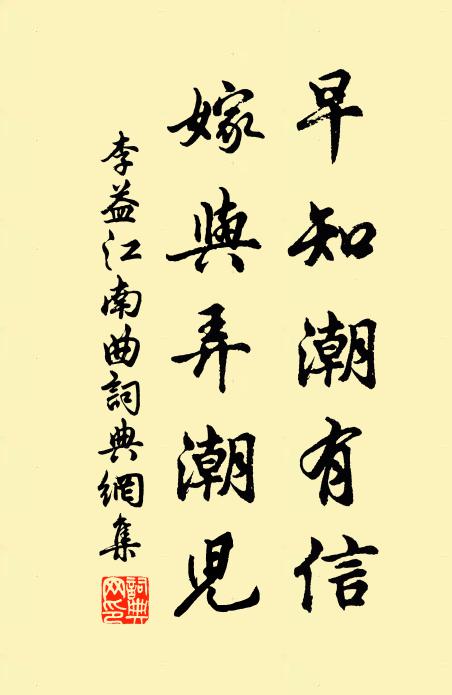 早知潮有信
嫁與弄潮兒
李益江南曲詞典網集
詞典網印